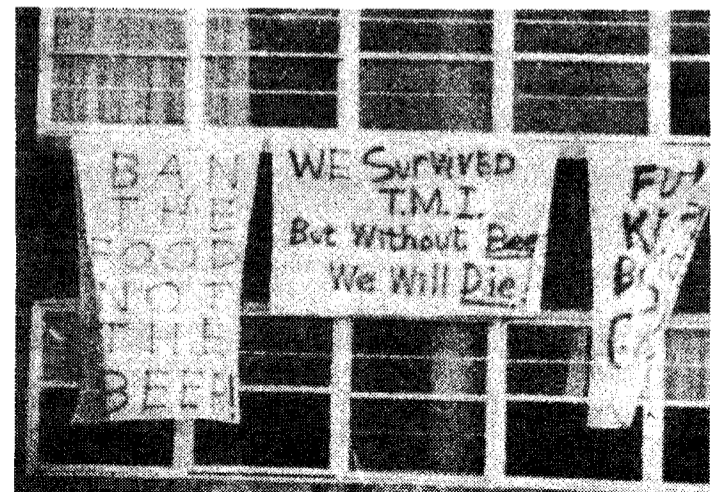 BAN
THE
FOOD
NOT
THE
BEER
WE SurViVED
T.M.I.
But Without Bee
We Will Die.